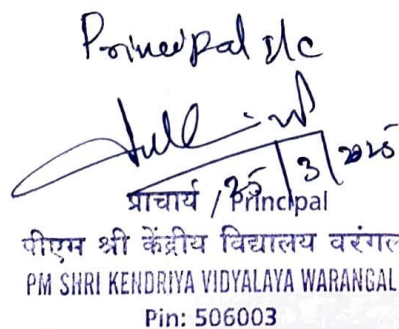 Principal I/c
25/3/2025
प्राचार्य / Principal
पीएम श्री केंद्रीय विद्यालय वरंगल
PM SHRI KENDRIYA VIDYALAYA WARANGAL
Pin: 506003